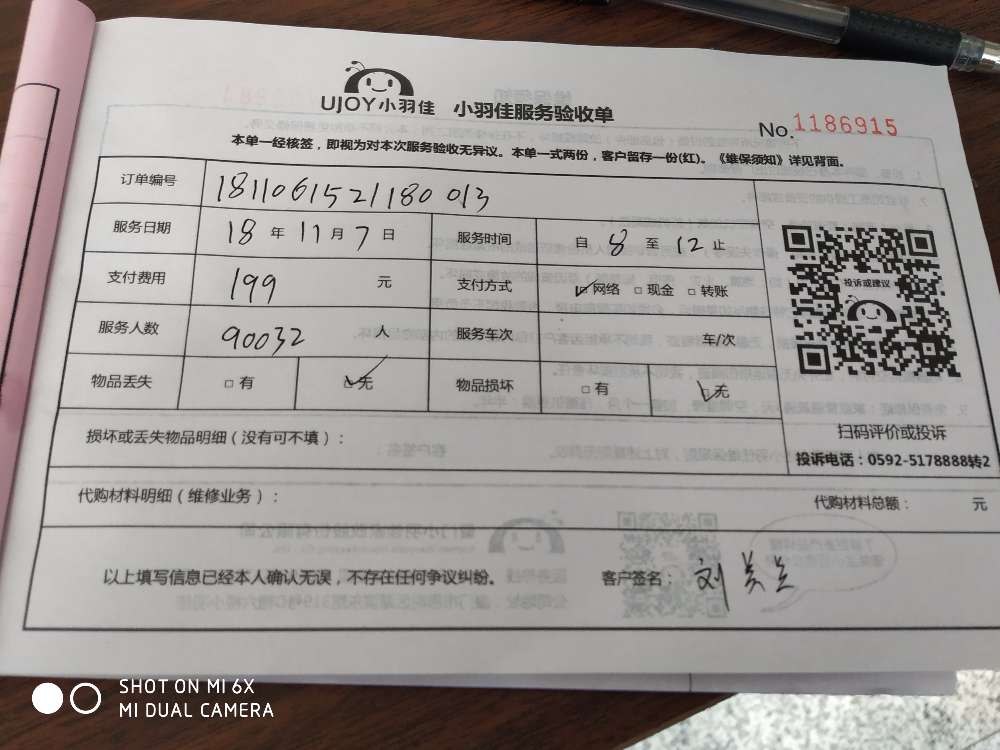 UJOY小羽佳 小羽佳服务验收单
No. 1186915
本单一经核签，即视为对本次服务验收无异议。本单一式两份，客户留存一份(红)。《维保须知》详见背面。
订单编号 1811061521180013
服务日期 18 年 11 月 7 日 服务时间 自 8 至 12 止
支付费用 199 元 支付方式 ☑网络 □现金 □转账
服务人数 90032 人 服务车次 车/次
物品丢失 □有 ☑无 物品损坏 □有 ☑无
投诉或建议
扫码评价或投诉
投诉电话：0592-5178888转2
损坏或丢失物品明细（没有可不填）：
代购材料明细（维修业务）： 代购材料总额： 元
以上填写信息已经本人确认无误，不存在任何争议纠纷。 客户签名： 刘
SHOT ON MI 6X
MI DUAL CAMERA